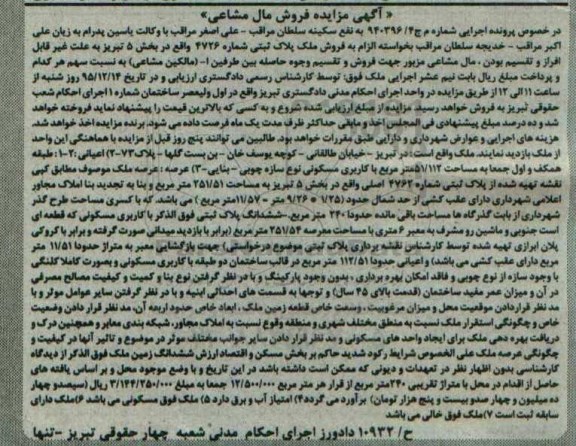 « آگهی مزایده فروش مال مشاعی»
در خصوص پرونده اجرایی شماره م ج۴/ ۹۴۰۳۹۶ به نفع سکینه سلطان مراقب - علی اصغر مراقب با وکالت یاسین پدرام به زیان علی
اکبر مراقب - خدیجه سلطان مراقب بخواسته الزام به فروش ملک پلاک ثبتی شماره ۴۷۲۶ واقع در بخش ۵ تبریز به علت غیر قابل
افراز و تقسیم بودن ، مال مشاعی مزبور جهت فروش و تقسیم وجوه حاصله بین طرفین ا- (مالکین مشاعی) به نسبت سهم هر کدام
و پرداخت مبلغ ریال بابت نیم عشر اجرایی ملک فوق: توسط کارشناس رسمی دادگستری ارزیابی و در تاریخ ۹۵/۱۲/۱۴ روز شنبه از
ساعت ۱۱ الی ۱۲ از طریق مزایده در واحد اجرای احکام مدنی دادگستری تبریز واقع در اول ولیعصر ساختمان شماره ۱ اجرای احکام شعب
حقوقی تبریز به فروش خواهد رسید. مزایده از مبلغ ارزیابی شده شروع و به کسی که بالاترین قیمت را پیشنهاد نماید فروخته خواهد
شد و ده درصد مبلغ پیشنهادی فی المجلس اخذ و مابقی حداکثر ظرف مدت یک ماه فرصت داده می شود. برنده مزایده اخذ خواهد شد.
هزینه های اجرایی و عوارض شهرداری و دارایی طبق مقررات خواهد بود. طالبین می توانند پنج روز قبل از مزایده با هماهنگی این واحد
از ملک بازدید نمایند. ملک واقع است: در تبریز - خیابان طالقانی - کوچه یوسف خان - بن بست گلها - پلاک ۷۳-۲) اعیانی :۲-۱: طبقه
همکف و اول جمعا به مساحت ۵۱/۱۱۲متر مربع با کاربری مسکونی نوع سازه چوبی - بنایی-۳) عرصه: عرصه ملک موصوف مطابق کپی
نقشه تهیه شده از پلاک ثبتی شماره ۴۷۶۲ اصلی واقع در بخش ۵ تبریز به مساحت ۲۵۱/۵۱ متر مربع و بنا به تجدید بنا املاک مجاور
اعلامی شهرداری دارای عقب کشی از حد شمال حدود (۱/۲۵ * ۹/۲۶ متر - ۱۱/۵۷متر مربع ) می باشد. که با کسری مساحت طرح گذر
شهرداری از بابت گذرگاه ها مساحت باقی مانده حدودا ۲۴۰ متر مربع.-ششدانگ پلاک ثبتی فوق الذکر با کاربری مسکونی که قطعه ای
است جنوبی و ماشین رو مشرف به معبر ۶ متری با مساحت معرصه ۲۵۱/۵۴ متر مربع (برابر با بازدید میدانی صورت گرفته و برابر با کروکی
پلان ابرازی تهیه شده توسط کارشناس نقشه برداری پلاک ثبتی موضوع درخواستی جهت بازگشایی معبر به متراژ حدودا ۱۱/۵۱ متر
مربع دارای عقب کشی می باشد) و اعیانی حدودا ۱۱۲/۵۱ متر مربع در قالب ساختمان دو طبقه با کاربری مسکونی و بصورت کاملا کلنگی
با وجود سازه از نوع چوبی و فاقد امکان بهره برداری ، بدون وجود پارکینگ و با در نظر گرفتن نوع بنا و کمیت و کیفیت مصالح مصرفی
در آن و میزان عمر مفید ساختمان (قدمت بالای ۴۵ سال) و توجها به قسمت های احداثی ابنیه و با در نظر گرفتن سایر عوامل موثر و با
مد نظر قراردادن موقعیت محل و میزان مرغوبیت ، وسعت خاص قطعه زمین ملک ، ابعاد خاص حدود اربعه آن، مد نظر قرار دادن وضعیت
خاص و چگونگی استقرار ملک نسبت به منطق مختلف شهری و منطقه وقوع نسبت به املاک مجاور، شبکه بندی معابر و همچنین درک و
دریافت بهره دهی ملک برای ایجاد واحد های مسکونی و مد نظر قرار دادن سایر جوانب مختلف موثر در موضوع و تاثیر آنها در کیفیت و
چگونگی عرصه ملک علی الخصوص شرایط رکود شدید حاکم بر بخش مسکن و اقتصاد ارزش ششدانگ زمین ملک فوق الذکر از دیدگاه
کارشناسی بدون اظهار نظر در تعهدات و دیونی که ممکن است داشته باشد در این تاریخ و با وضع موجود محل و بر اساس یافته های
حاصل از اقدام در محل با متراژ تقریبی ۲۴۰متر مربع از قرار هر متر مربع ۱۲/۵۰۰/۰۰۰ جمعا به مبلغ ۳/۱۴۴/۲۵۰/۰۰۰ ریال (سیصدو چهار
ده میلیون و چهار صدو بیست و پنج هزار تومان) برآورد می گردد۴) امتیاز آب و برق دارد ۵) ملک فوق مسکونی می باشد ۶)ملک دارای
سابقه ثبت است ۷)ملک فوق خالی می باشد
ح/ ۱۰۹۳۲ دادورز اجرای احکام مدنی شعبه چهار حقوقی تبریز -تنها